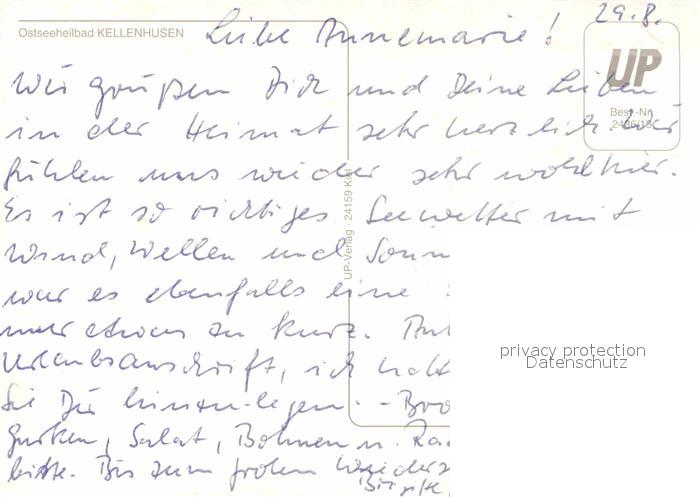 Ostseeheilbad KELLENHUSEN
29.8.
Liebe Annemarie!
UP
Best.-Nr.
Wir grüßen Dich und Deine Lieben
in der Heimat sehr herzlich. Wir
fühlen uns wieder sehr wohl hier.
Es ist so richtiges Seewetter mit
Wind, Wellen und Sonn
war es ebenfalls eine
nur etwas zu kurz.
Urlaubsanschrift, ich
Sie Dir hinzulegen. -
Gurken, Salat, Bohnen u.
bitte. Bis zum frohen Wieders
UP-Verlag · 24159 Kiel
privacy protection
Datenschutz